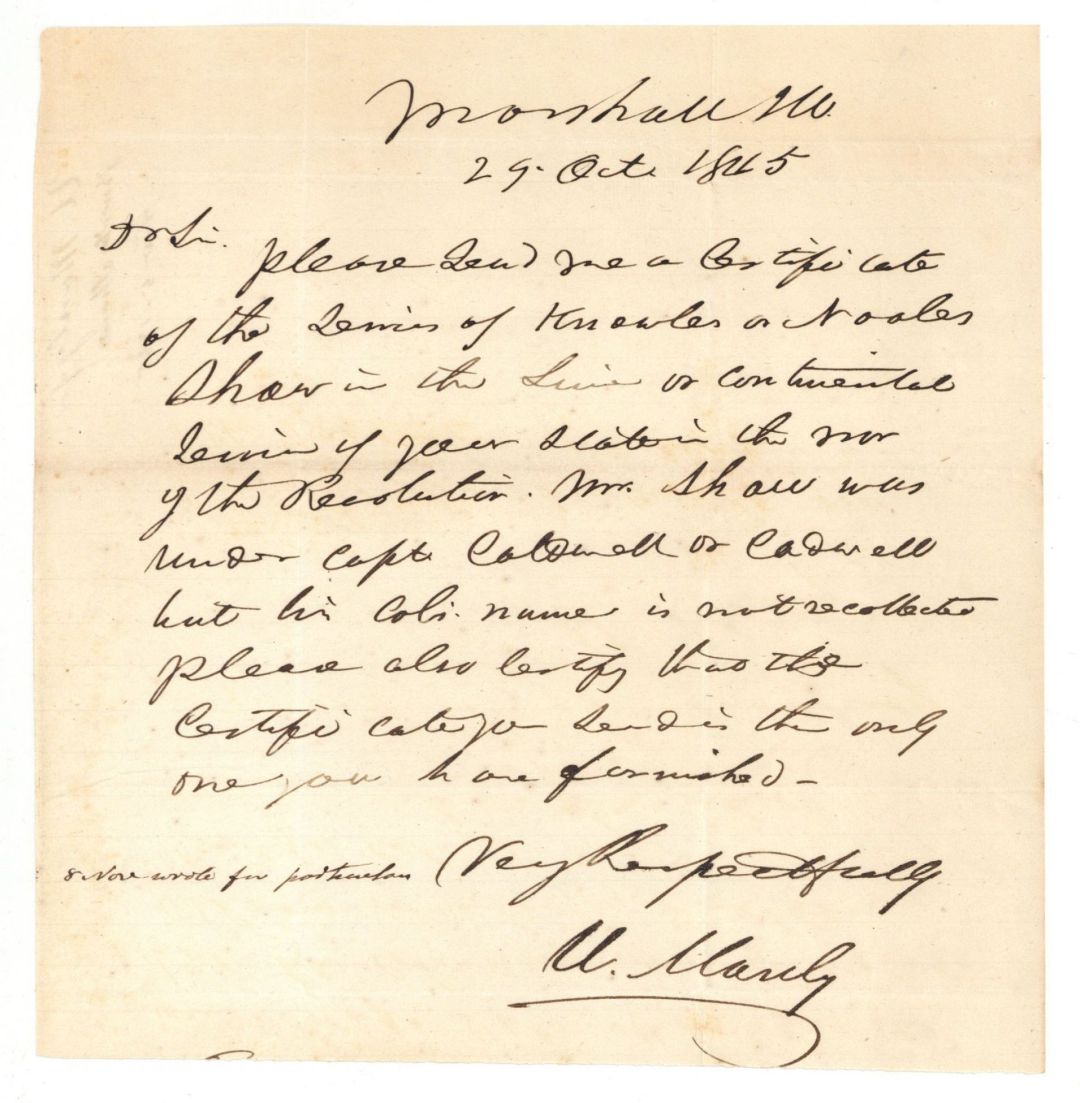 Marshall Ill.
29. Oct. 1845
Dr Sir.
please Send me a Certificate
of the Servics of Knowles or Nooles
Shaw in the Line or continental
Servic of your State in the war
of the Revolution. Mr. Shaw was
under capt. Caldwell or Cadwell
but his Cols. name is not recollected
please also Certify that the
Certificate you Send is the only
one you have furnished -
8 Nov wrote for particulars
Very Respectfully
U. Manly